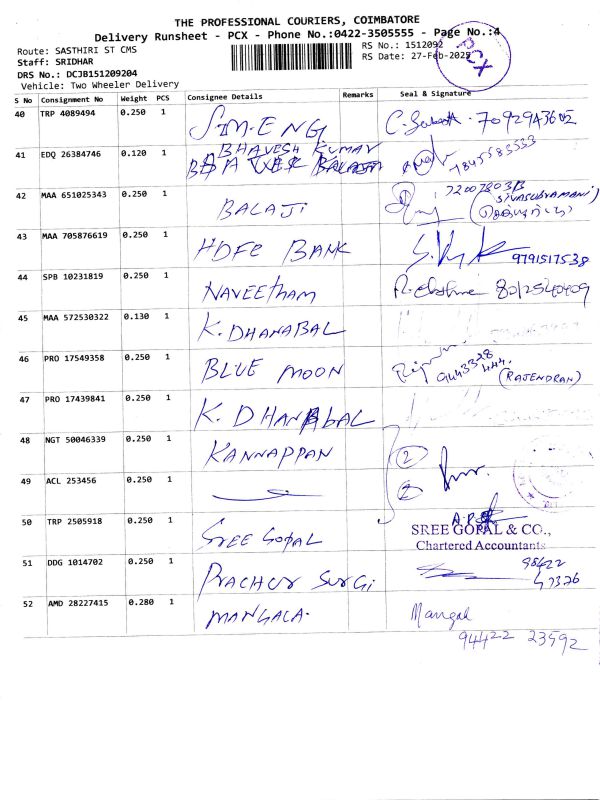 THE PROFESSIONAL COURIERS, COIMBATORE
Delivery Runsheet - PCX - Phone No.:0422-3505555 - Page No.:4
Route: SASTHIRI ST CMS
RS No.: 1512092
Staff: SRIDHAR
RS Date: 27-Feb-2025
PCX
DRS No.: DCJB151209204
Vehicle: Two Wheeler Delivery
S No Consignment No Weight PCS Consignee Details Remarks Seal & Signature
40 TRP 4089494 0.250 1 SM.ENG 7092943602
41 EDQ 26384746 0.120 1 BHAVESH KUMAR 7845583333
BALAJI
42 MAA 651025343 0.250 1 BALAJI (SIVASUBRAMANI)
43 MAA 705876619 0.250 1 HDFC BANK 9791517538
44 SPB 10231819 0.250 1 NAVEETHAM 8012540409
45 MAA 572530322 0.130 1 K. DHANABAL
46 PRO 17549358 0.250 1 BLUE MOON 9443328444. (RAJENDRAN)
47 PRO 17439841 0.250 1 K. DHANABAL
48 NGT 50046339 0.250 1 KANNAPPAN 2
49 ACL 253456 0.250 1 2
50 TRP 2505918 0.250 1 SREE GOPAL
SREE GOPAL & CO.,
Chartered Accountants
51 DDG 1014702 0.250 1 PRACHUR SURGI 98422
47326
52 AMD 28227415 0.280 1 MANGALA. Mangal
94422 23592